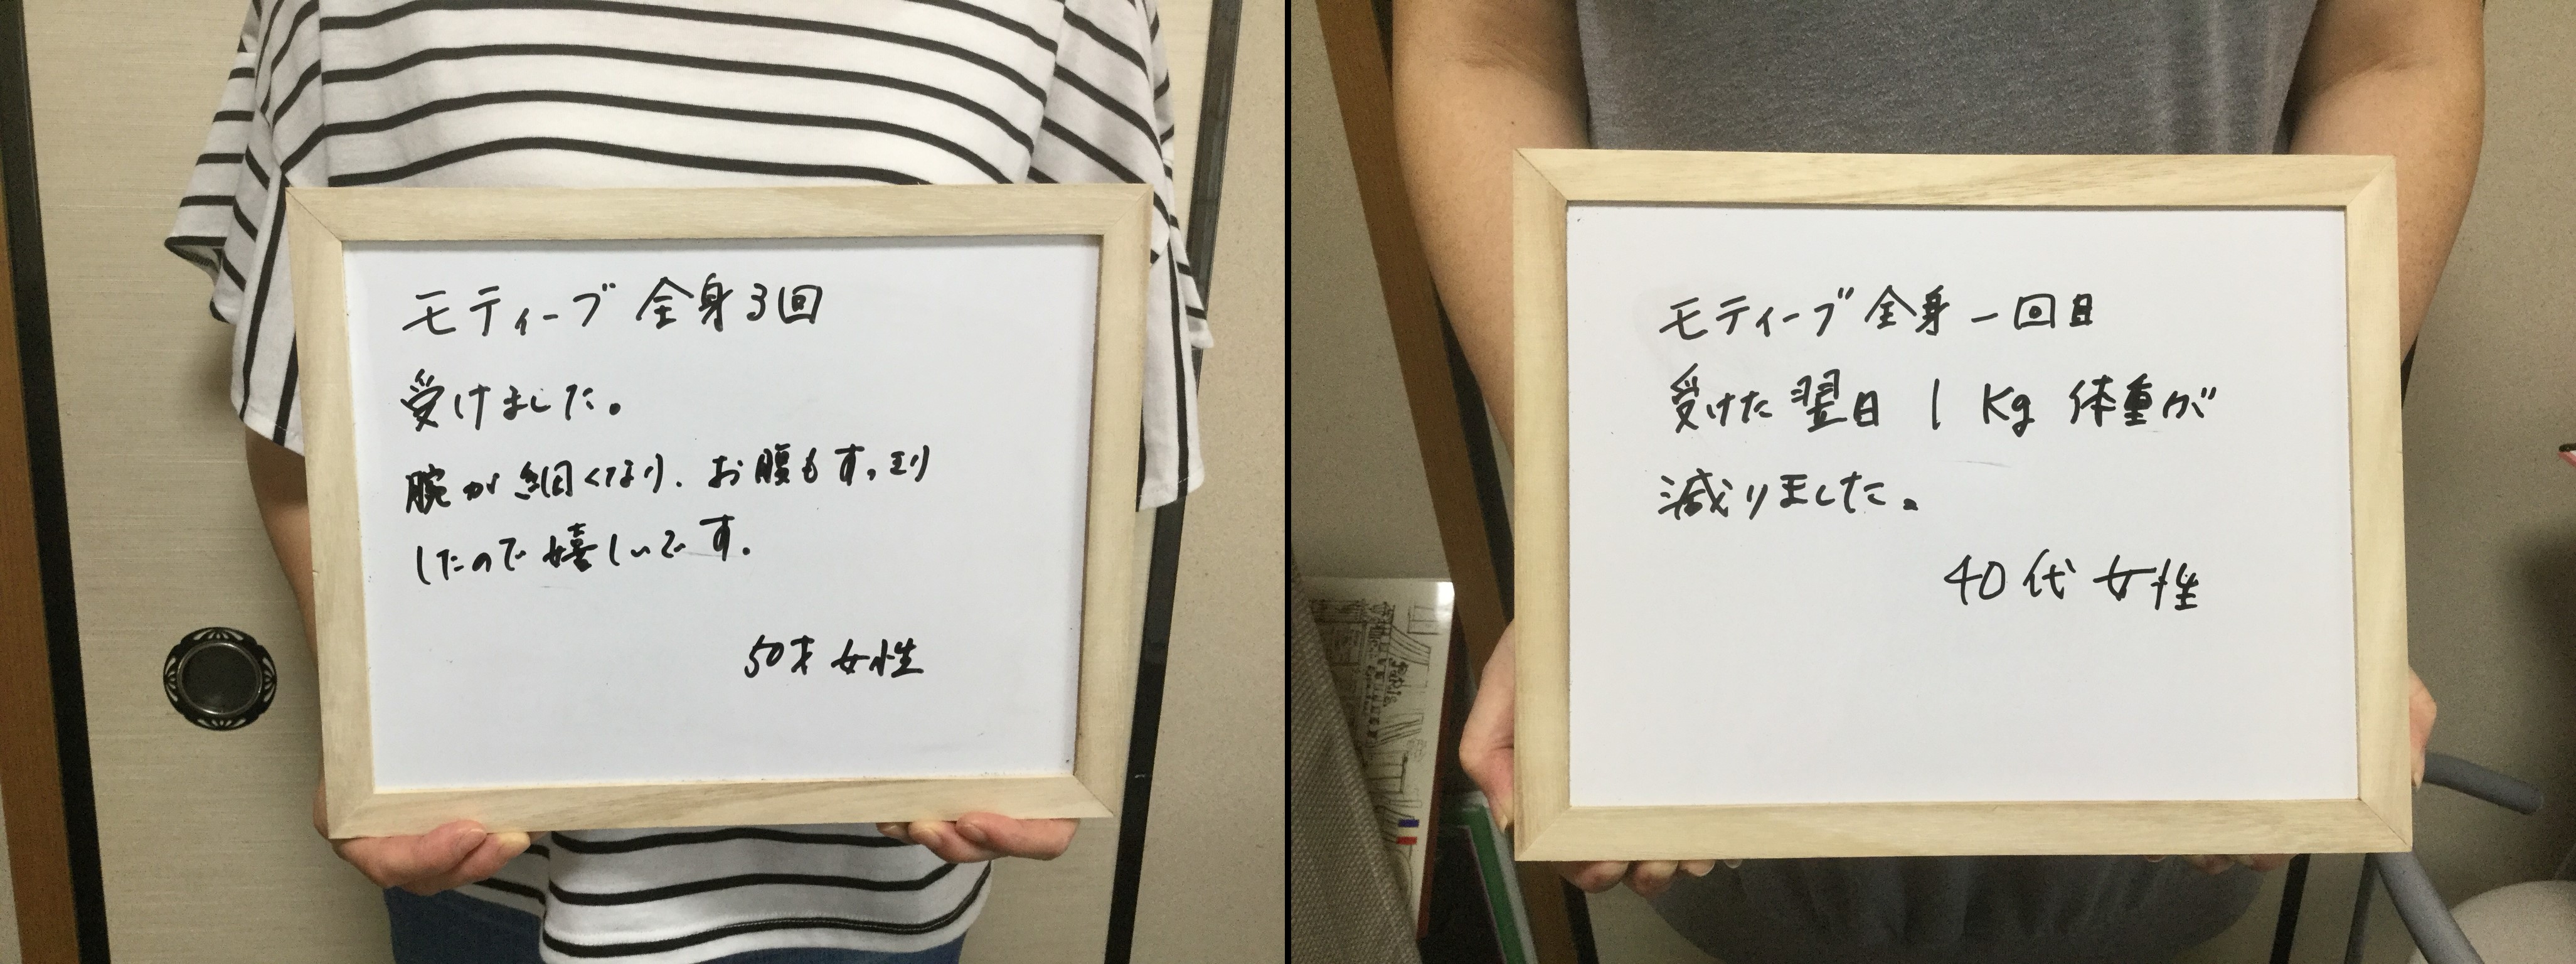 モティーブ 全身3回
受けました。
腕が細くなり、お腹もすっきり
したので嬉しいです。
50才 女性
モティーブ全身一回目
受けた翌日 1 Kg 体重が
減りました。
40代 女性